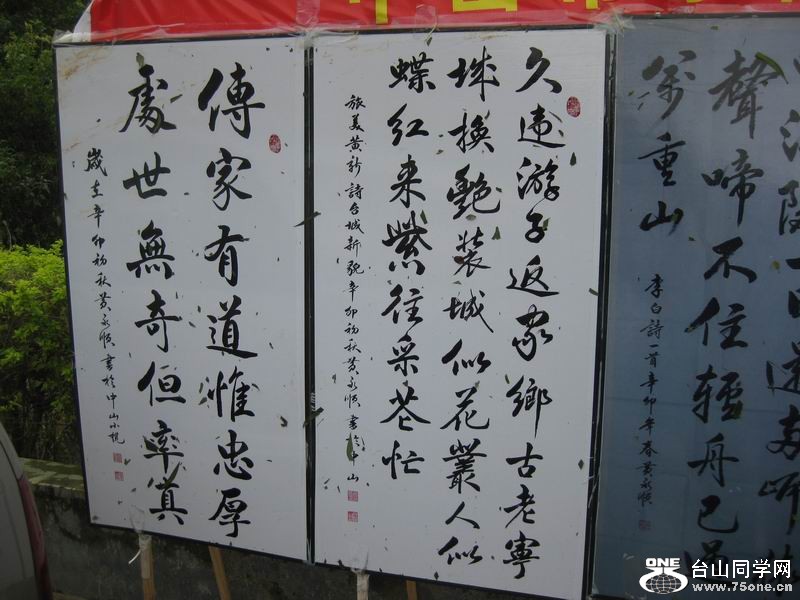 江陵一日還两岸
聲啼不住輕舟已過
萬重山
李白詩一首辛卯年春黃永順
久违游子返家鄉古老寧
城換艷裝城似花叢人似
蝶红来紫往采花忙
旅美黄新詩台城新貌辛卯初秋黄永順書於中山
傳家有道惟忠厚
處世無奇但率真
歲在辛卯初秋黄永順書於中山小
ONE 台山同学网
www.75one.cn